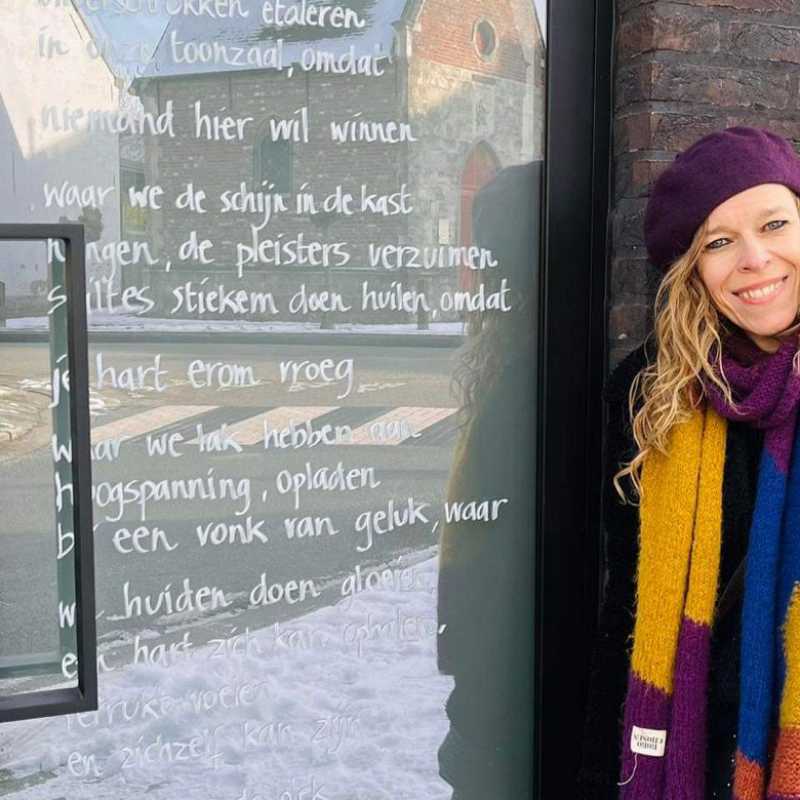 etaleren
in onze toonzaal, omdat
niemand hier wil winnen
waar we de schijn in de kast
hangen, de pleisters verzuimen
stiltes stiekem doen huilen, omdat
je hart erom vroeg
waar we lak hebben aan
hoogspanning, opladen
bij een vonk van geluk, waar
we huiden doen gloeien,
een hart zich kan ophalen,
verrukt voelen
en zichzelf kan zijn